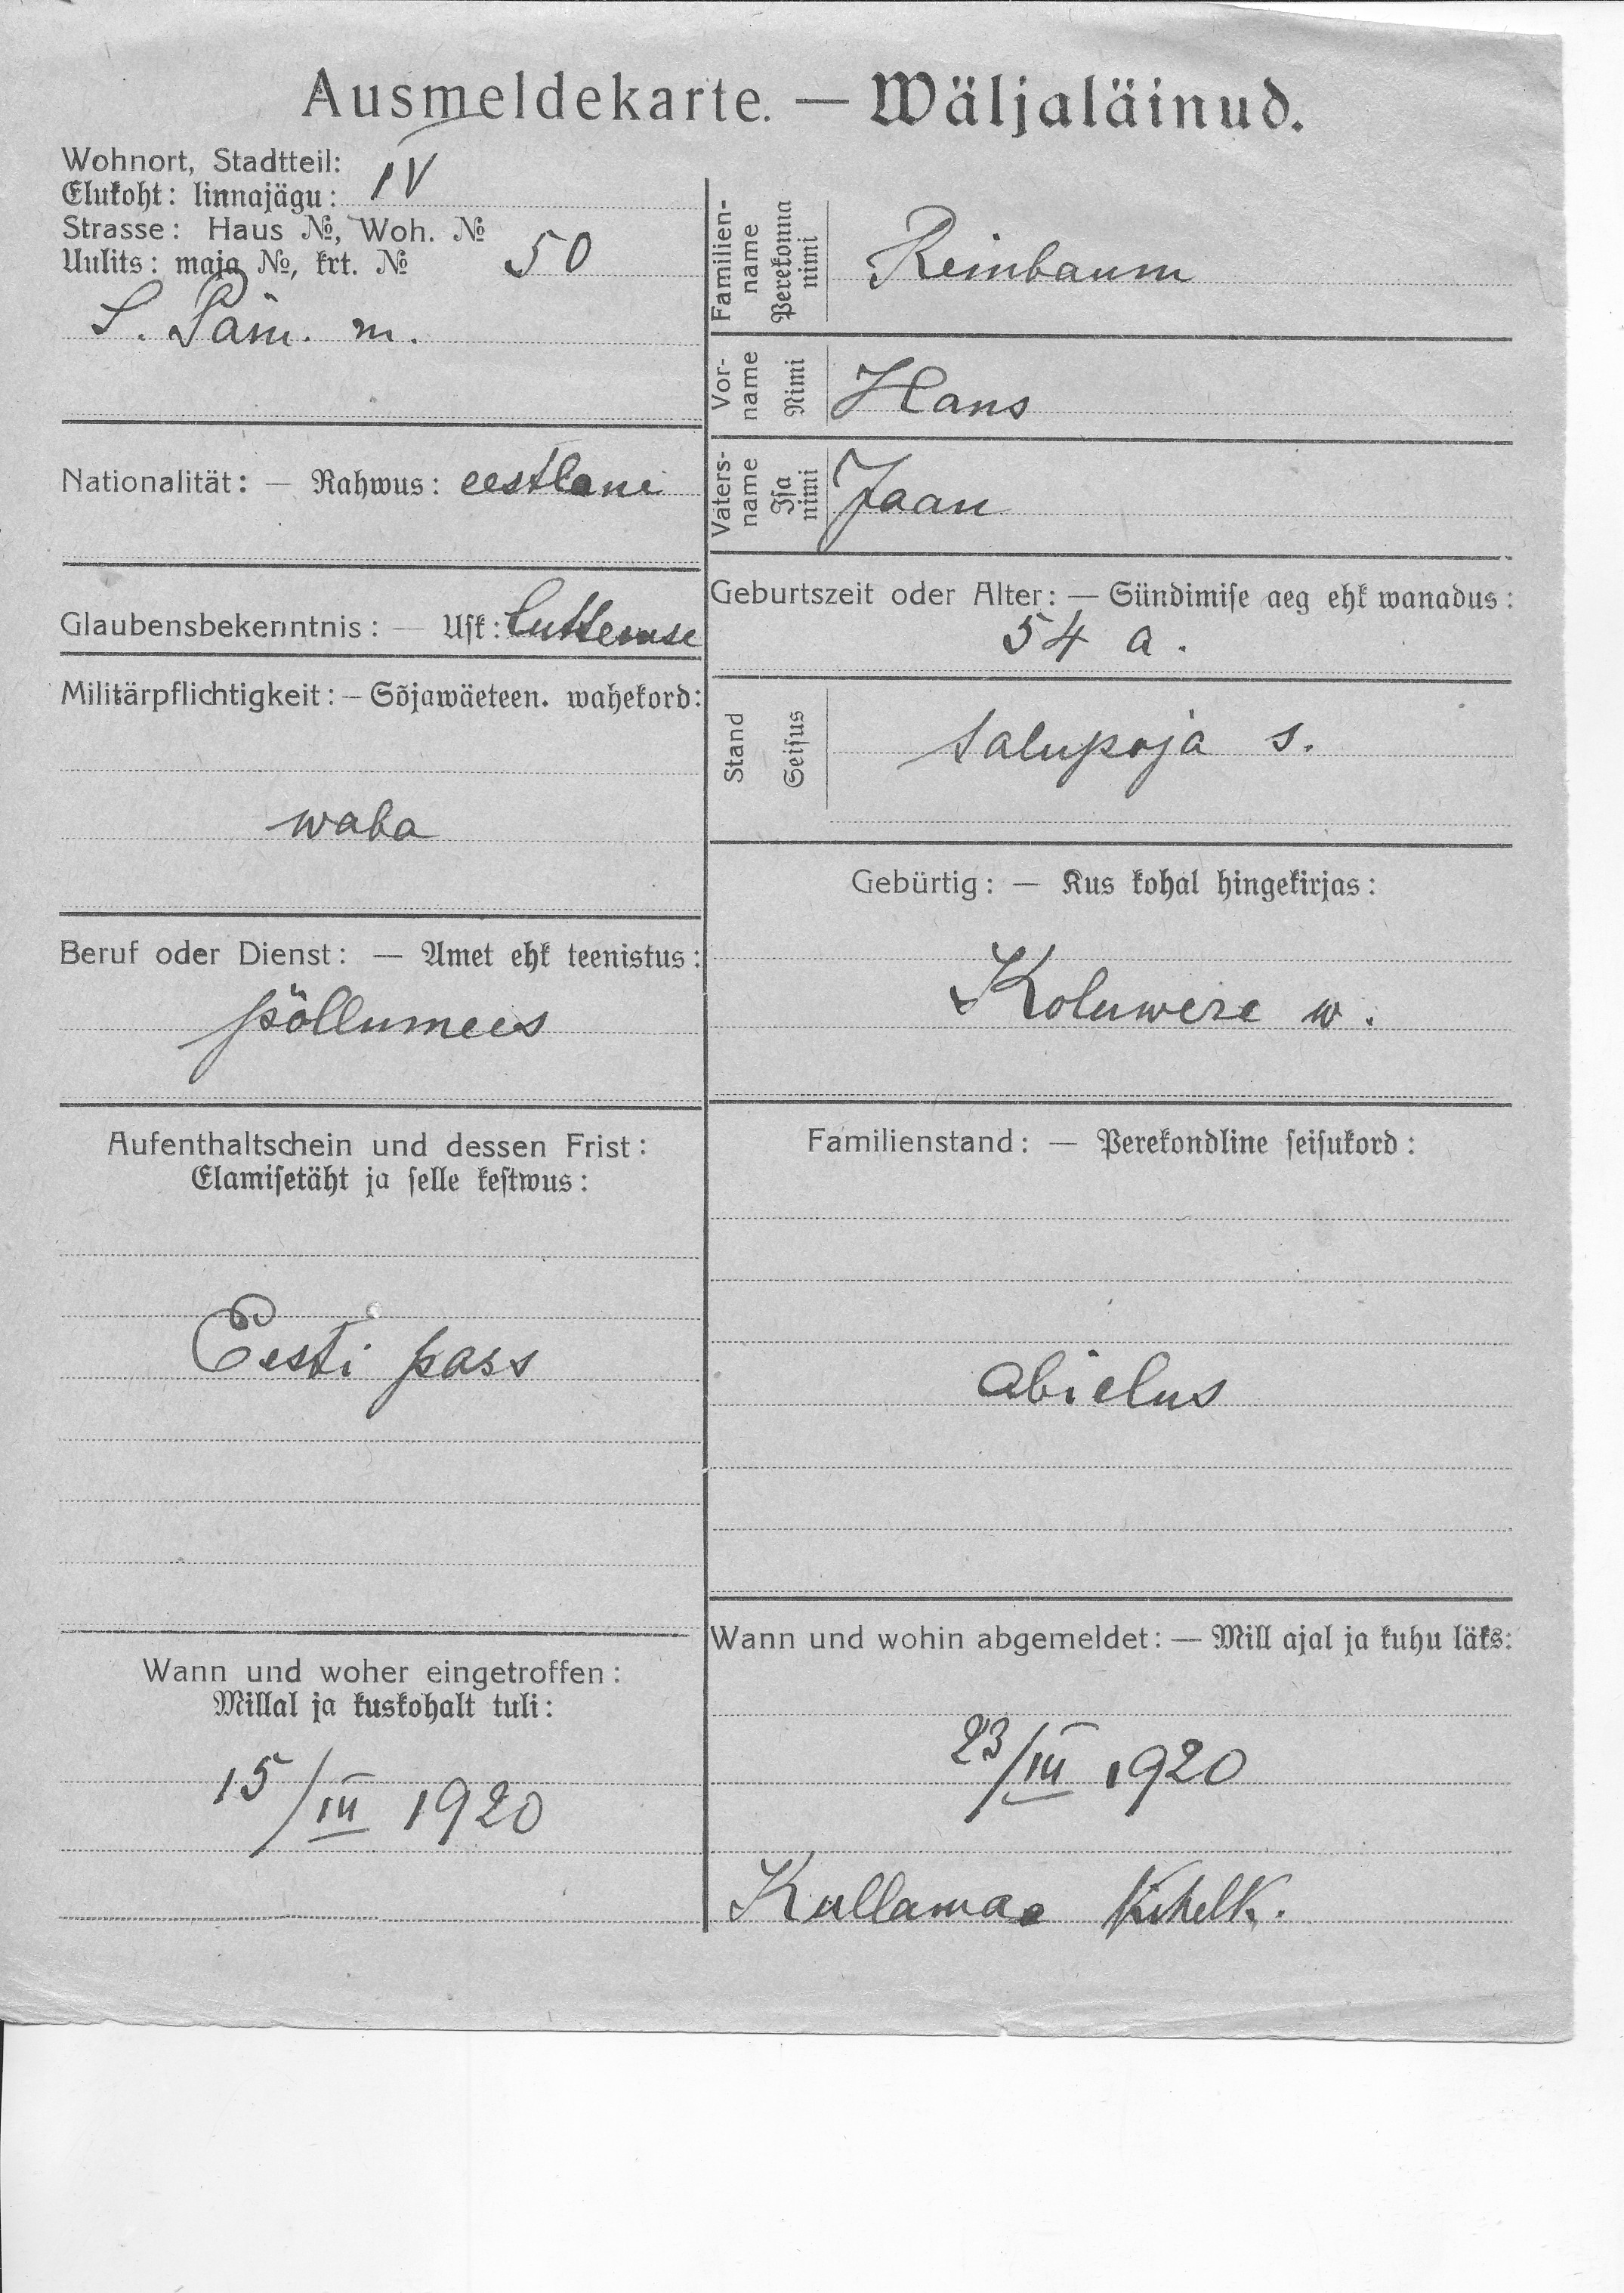 Ausmeldekarte. — Wäljaläinud.
Wohnort, Stadtteil:
Elukoht: linnajägu: IV
Strasse: Haus №, Woh. №
Uulits: maja №, krt. № 50
S. Pärn. m.
Nationalität: — Rahwus: eestlane
Glaubensbekenntnis: — Usk: lutterruse
Militärpflichtigkeit: — Sõjawäeteen. wahekord:
waba
Beruf oder Dienst: — Amet ehk teenistus:
põllumees
Aufenthaltschein und dessen Frist:
Elamisetäht ja selle kestwus:
Eesti pass
Wann und woher eingetroffen:
Millal ja kuskohalt tuli:
15/III 1920
Familien-
name
Perekonna
nimi
Reinbaum
Vor-
name
Nimi
Hans
Vaters-
name
Isa
nimi
Jaan
Geburtszeit oder Alter: — Sündimise aeg ehk wanadus:
54 a.
Stand
Seisus
talupoja s.
Gebürtig: — Kus kohal hingekirjas:
Koluwere w.
Familienstand: — Perekondline seisukord:
abielus
Wann und wohin abgemeldet: — Mill ajal ja kuhu läks:
23/III 1920
Kullamaa Kihelk.